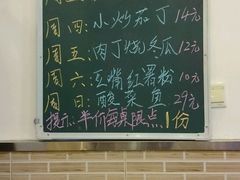 周四:小炒茄丁 14元
周五:肉丁烧冬瓜 12元
周六:豆嘴红薯粉 10元
周日:酸菜鱼 29元
提示:半价每桌限点1份